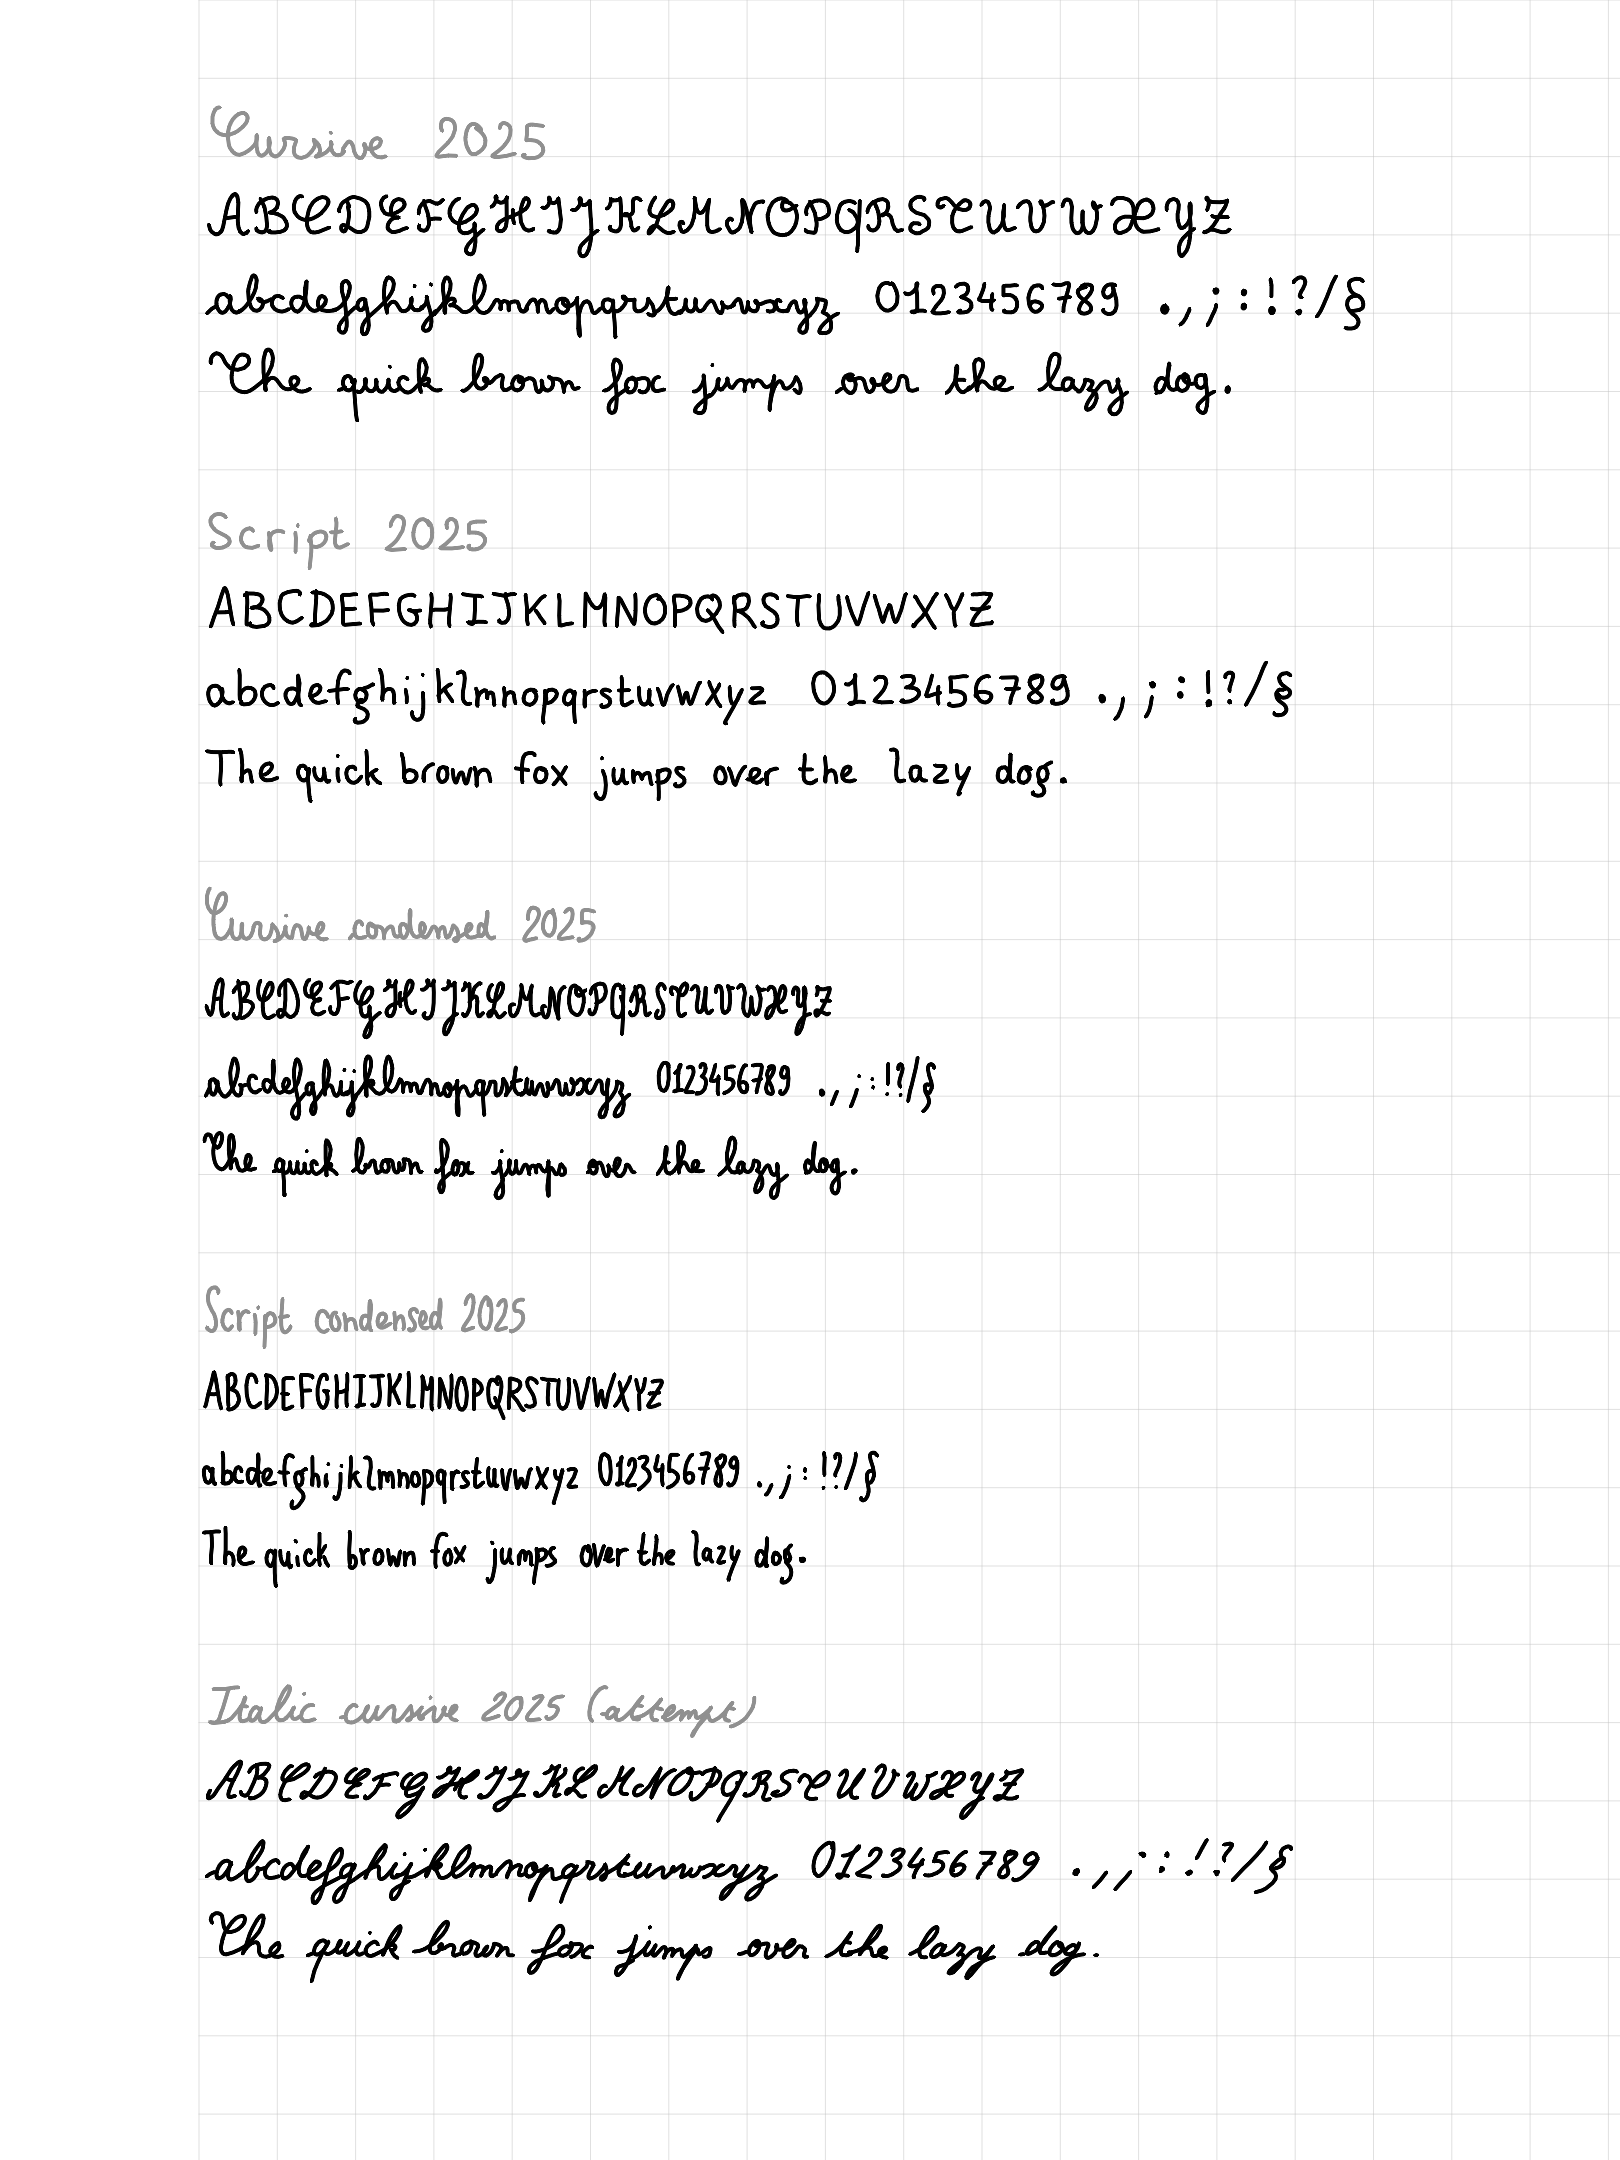 Cursive 2025
ABCDEFGHIJKLMNOPQRSTUVWXYZ
abcdefghijklmnopqrstuvwxyz 0123456789 .,;:!?/§
The quick brown fox jumps over the lazy dog.
Script 2025
ABCDEFGHIJKLMNOPQRSTUVWXYZ
abcdefghijklmnopqrstuvwxyz 0123456789 .,;:!?/§
The quick brown fox jumps over the lazy dog.
Cursive condensed 2025
ABCDEFGHIJKLMNOPQRSTUVWXYZ
abcdefghijklmnopqrstuvwxyz 0123456789 .,;:!?/§
The quick brown fox jumps over the lazy dog.
Script condensed 2025
ABCDEFGHIJKLMNOPQRSTUVWXYZ
abcdefghijklmnopqrstuvwxyz 0123456789 .,;:!?/§
The quick brown fox jumps over the lazy dog.
Italic cursive 2025 (attempt)
ABCDEFGHIJKLMNOPQRSTUVWXYZ
abcdefghijklmnopqrstuvwxyz 0123456789 .,;:!?/§
The quick brown fox jumps over the lazy dog.